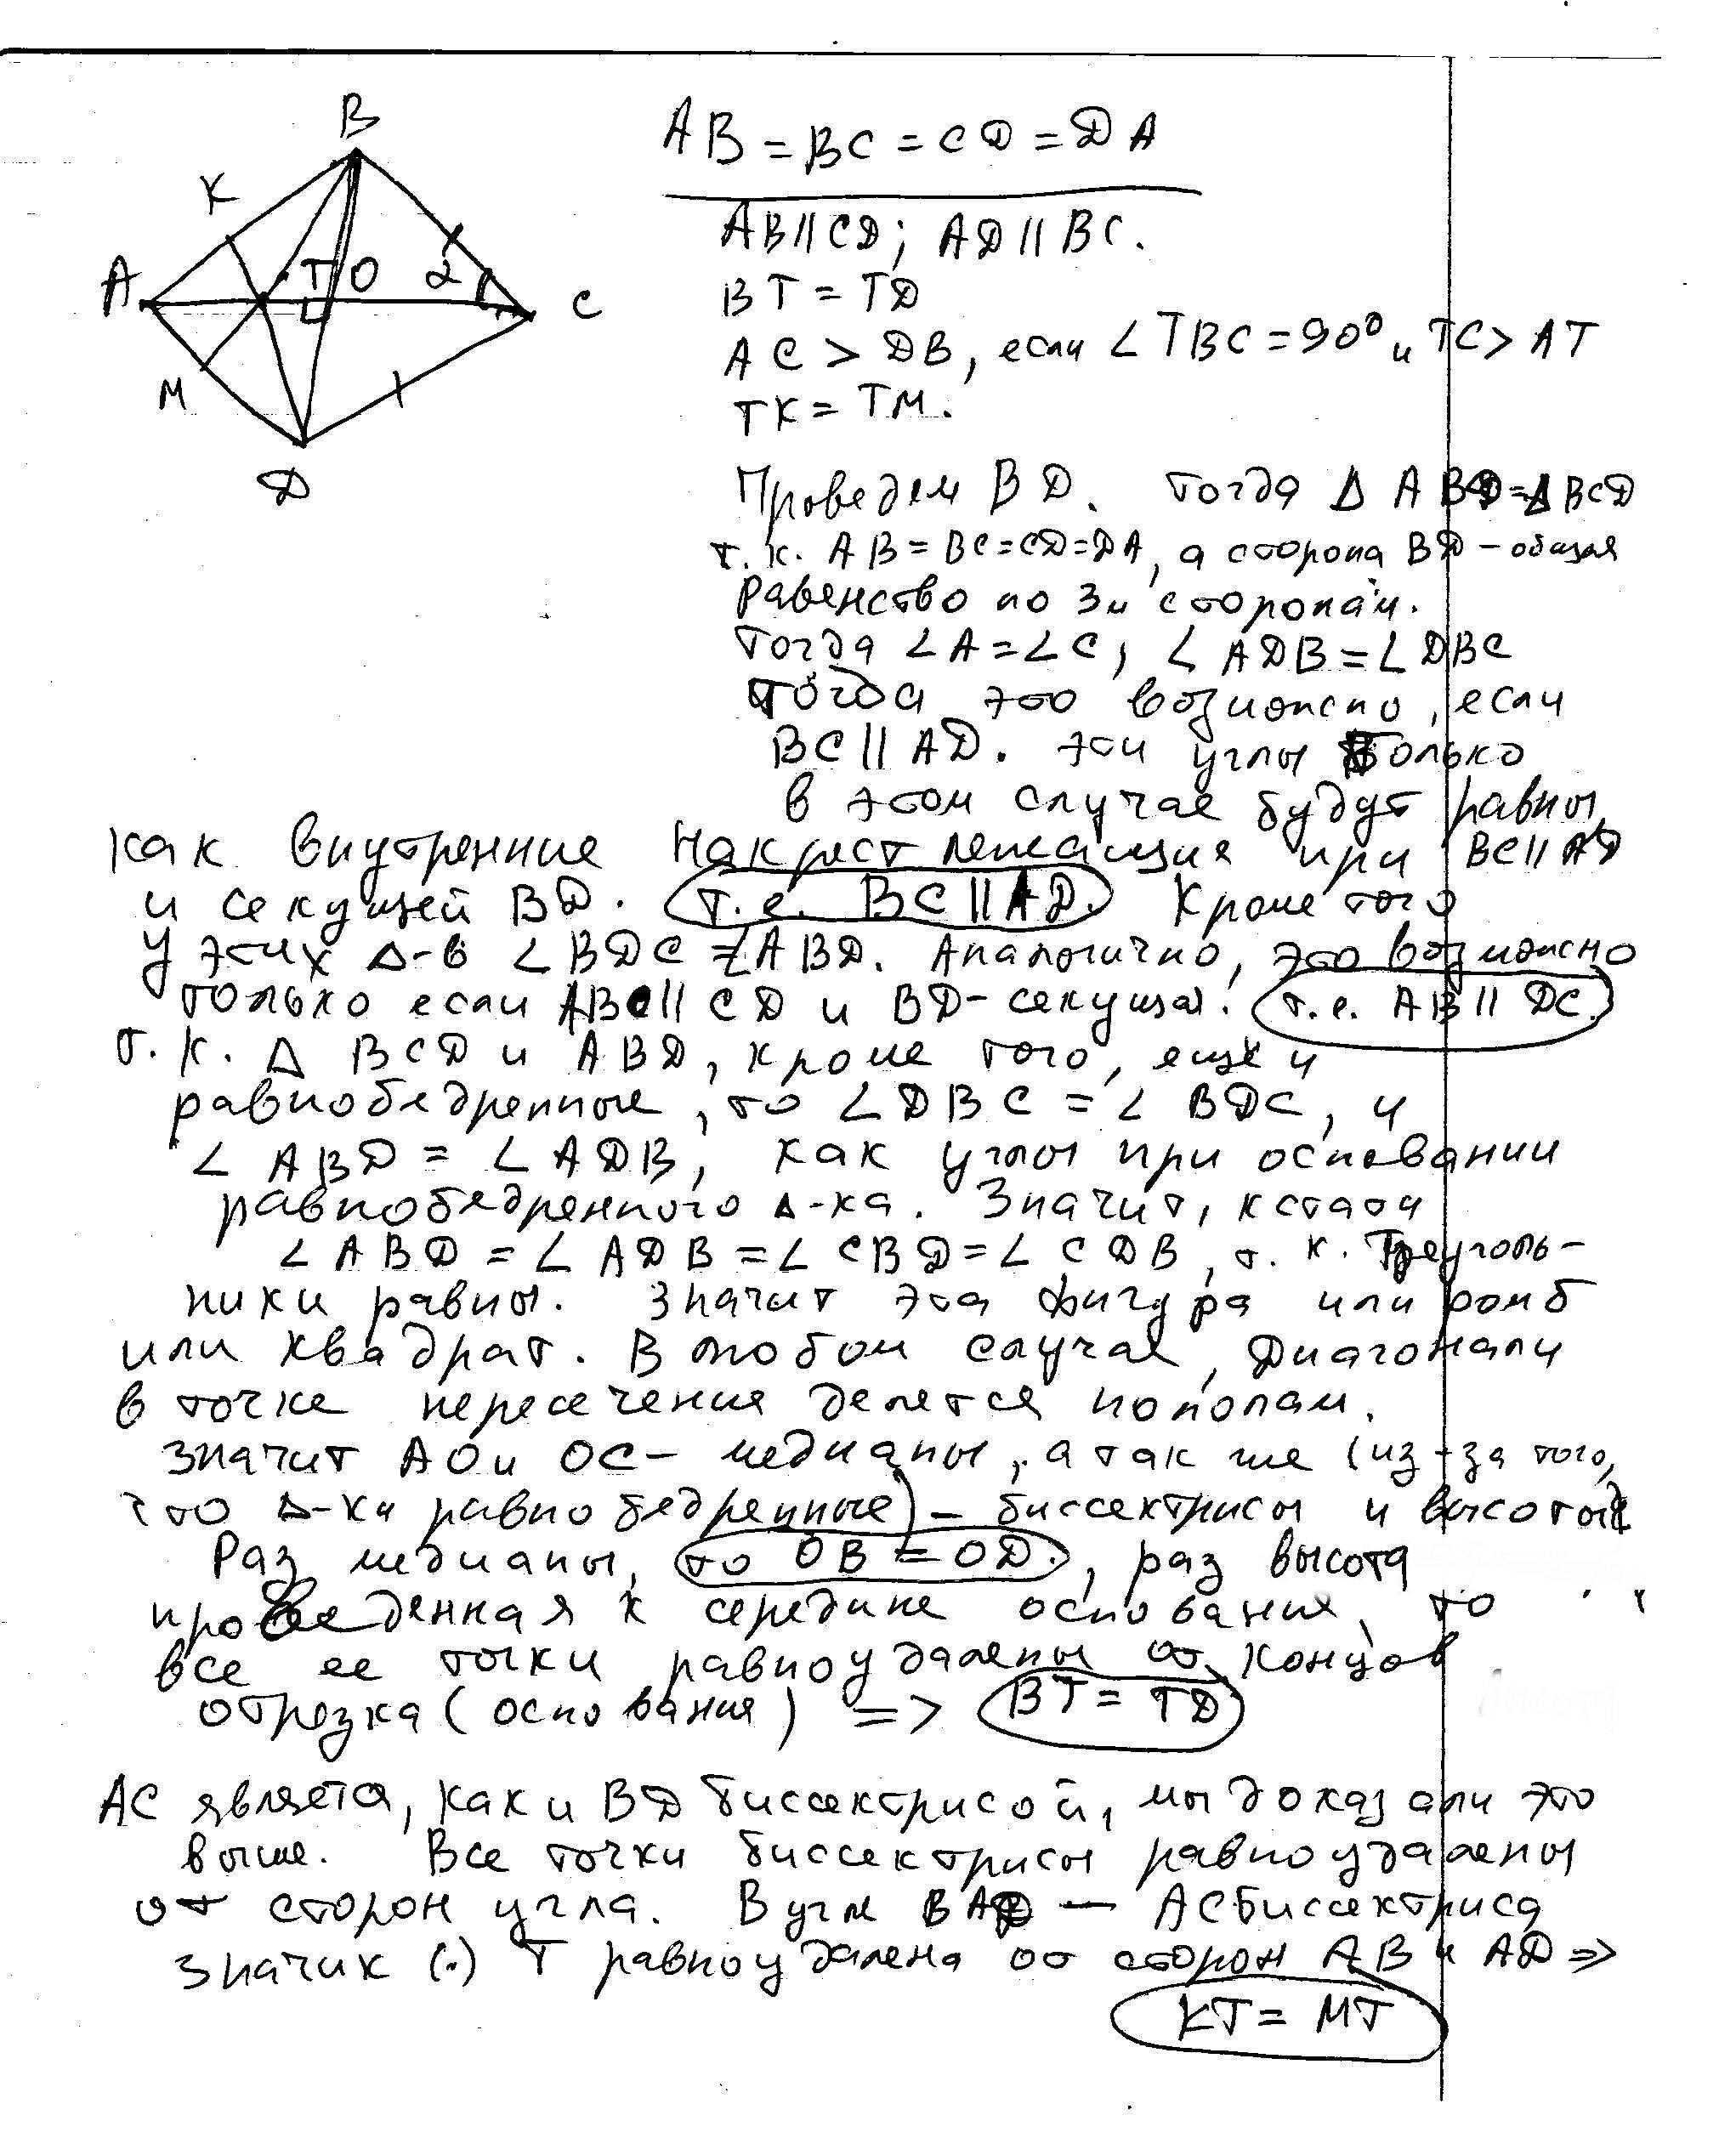 B
K
A
T O 2
C
M
D
AB = BC = CD = DA
AB || CD; AD || BC.
BT = TD
AC > DB, если ∠TBC = 90° и TC > AT
TK = TM.
Проведем BD. Тогда Δ ABD = Δ BCD
т.к. AB = BC = CD = DA, а сторона BD - общая
Равенство по 3м сторонам.
Тогда ∠A = ∠C, ∠ADB = ∠DBC
Тогда это возможно, если
BC || AD. Эти углы только
в этом случае будут равны,
как внутренние накрест лежащия при BC || AD
и секущей BD. т.е. BC || AD. Кроме того
у этих Δ-в ∠BDC = ∠ABD. Аналогично, это возможно
только если AB || CD и BD - секущая. т.е. AB || DC.
Т.К. Δ BCD и ABD, кроме того, ещё и
равнобедренные, то ∠DBC = ∠BDC, и
∠ABD = ∠ADB, как углы при основании
равнобедренного Δ-ка. Значит, кстати
∠ABD = ∠ADB = ∠CBD = ∠CDB, т.к. Треуголь-
ники равны. Значит эта фигура или ромб
или квадрат. В любом случае, Диагонали
в точке пересечения делятся пополам.
Значит AO и OC - медианы, а так же (из-за того,
что Δ-ки равнобедренные) - биссектрисы и высоты
Раз медианы, то OB = OD., раз высота
проведенная к середине основания, то
все ее точки равноудалены от концов
отрезка (основания) => BT = TD
AC являетя, как и BD биссектрисой, мы доказали это
выше. Все точки биссектрисы равноудалены
от сторон угла. В угле BAD — AC биссектриса
значик (.) T равноудалена от сторон AB и AD =>
KT = MT